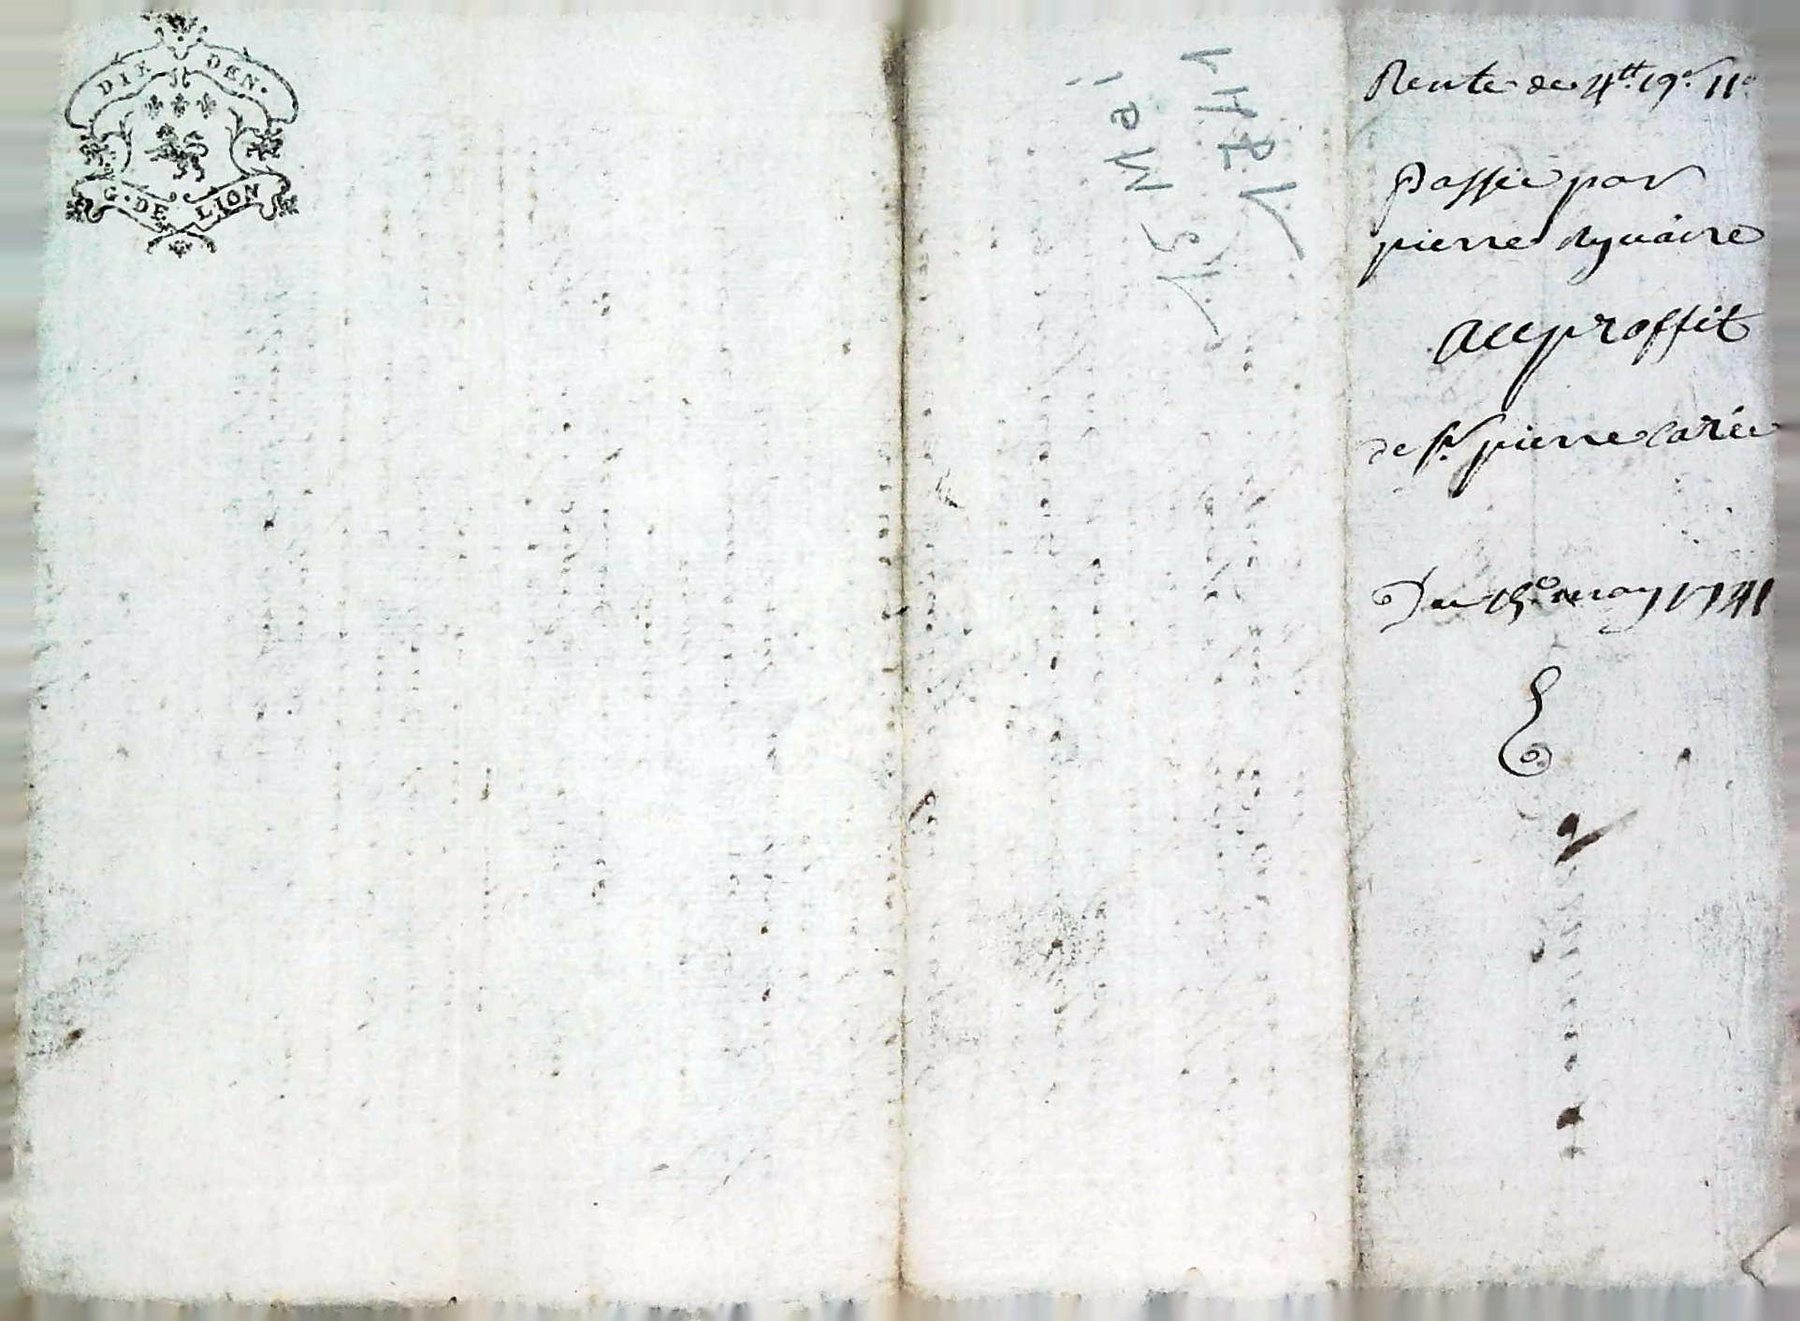 DIE DEN.
G. DE LION
15 Mai
1741
Rente de 4tt 19s 11d
Passée par
pierre
Au proffit
de sr pierre carée
Du 15e may 1741